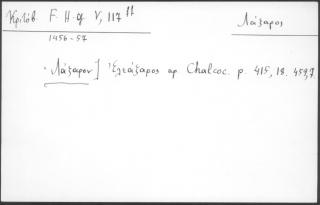 Κριτόβ. F. H. G. V, 117 ff
Λάζαρος
1456-57
· Λάζαρον] Ἐλεάζαρος ap. Chalcoc. p. 415, 18. 459,7.